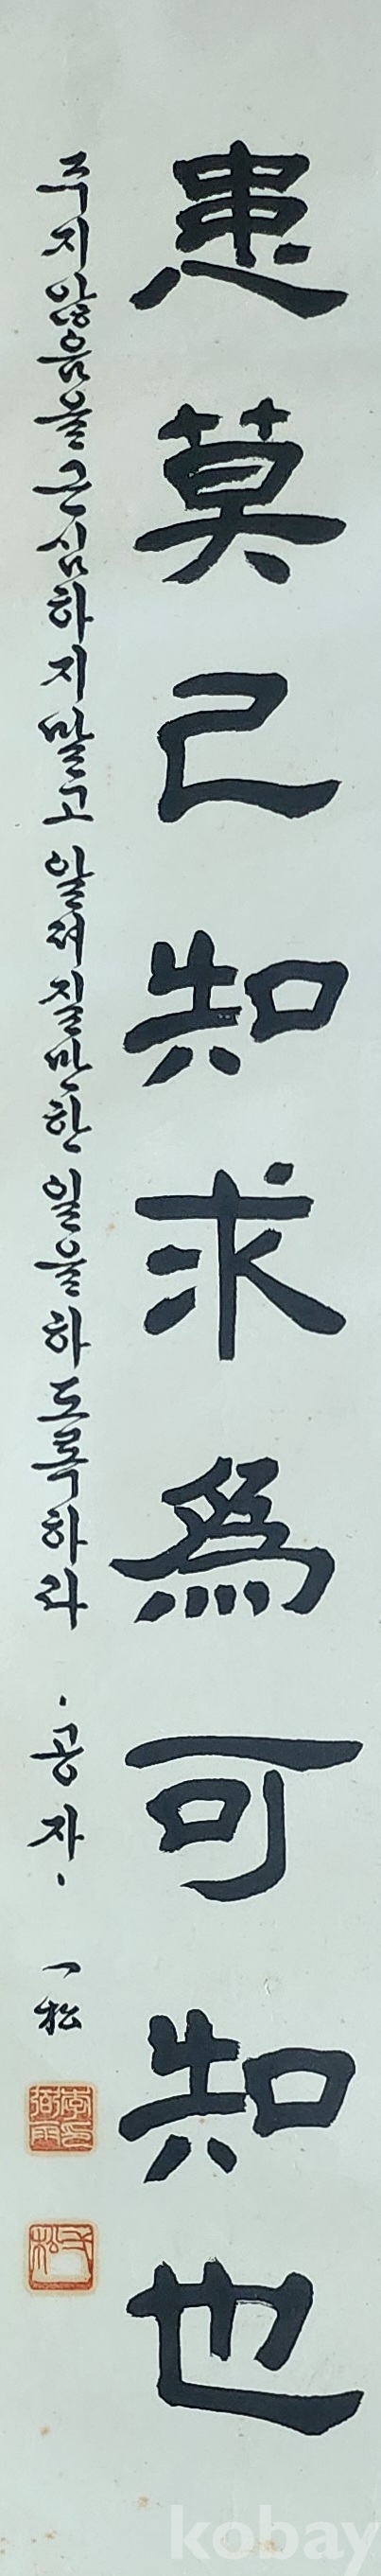 患莫己知求為可知也
주지않음을근심하지말고 알려질만한 일을하도록하라 ·공자· 一松
kobay